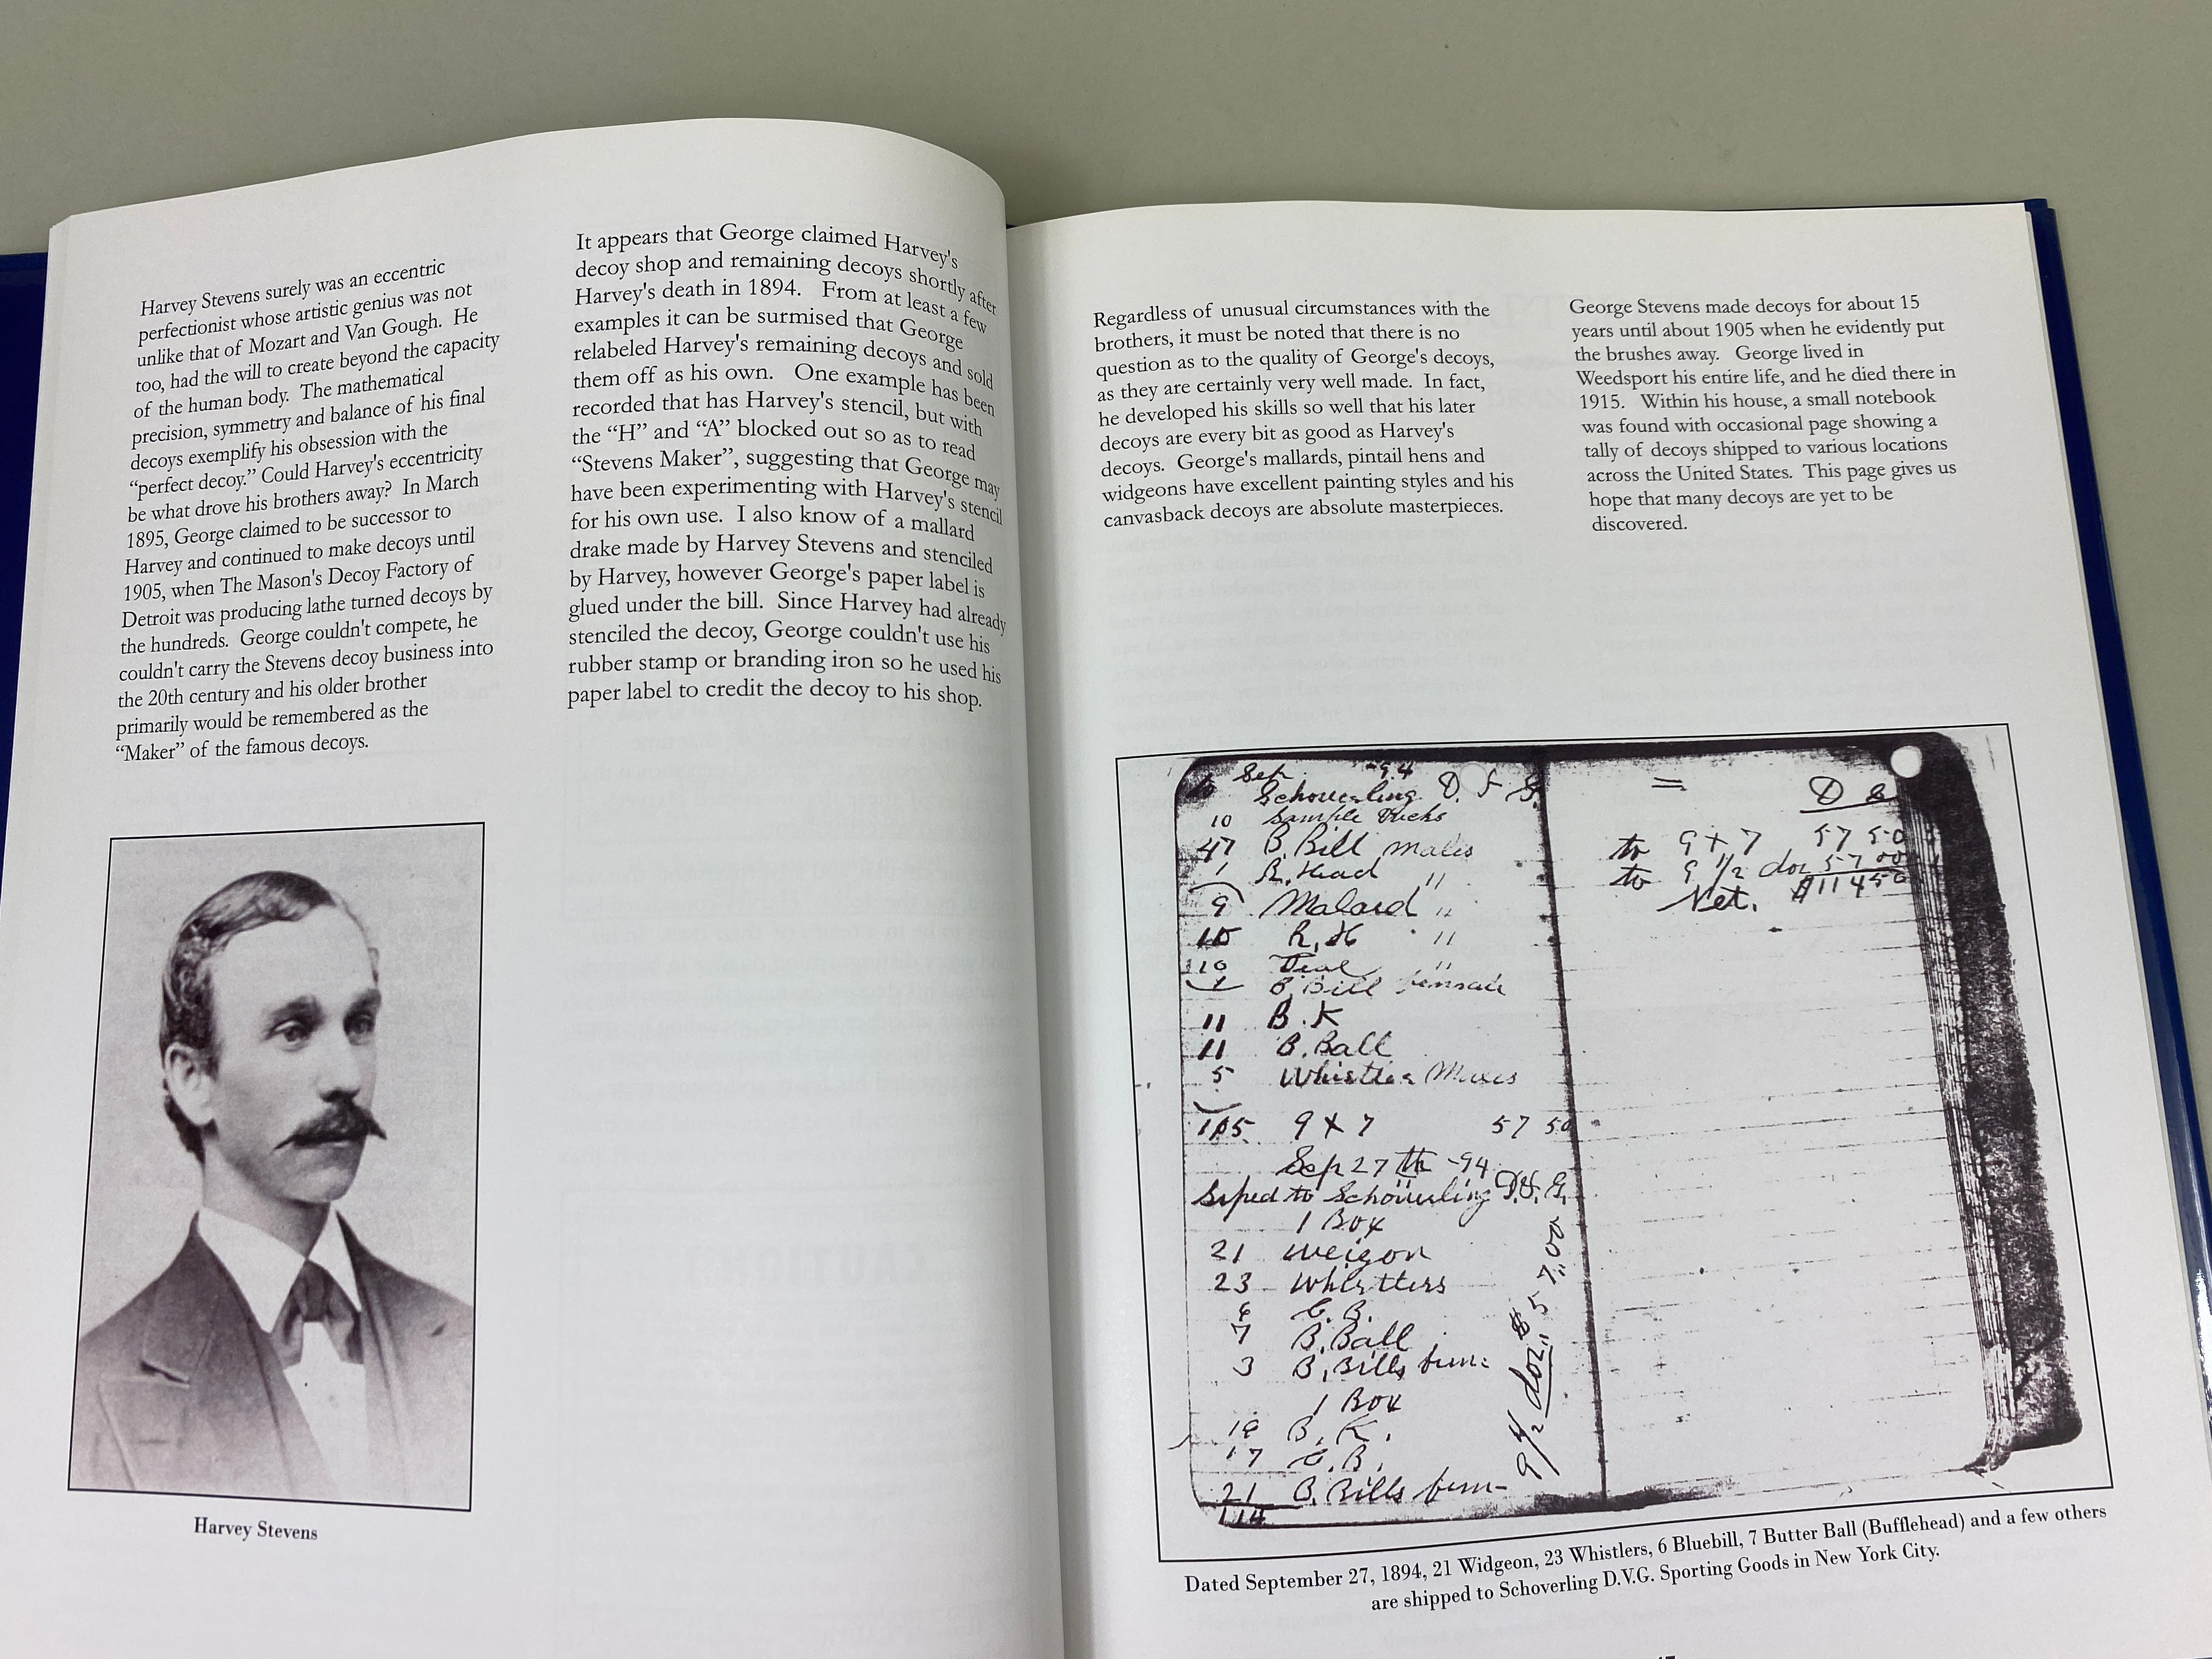 Harvey Stevens surely was an eccentric
perfectionist whose artistic genius was not
unlike that of Mozart and Van Gough. He
too, had the will to create beyond the capacity
of the human body. The mathematical
precision, symmetry and balance of his final
decoys exemplify his obsession with the
“perfect decoy.” Could Harvey's eccentricity
be what drove his brothers away? In March
1895, George claimed to be successor to
Harvey and continued to make decoys until
1905, when The Mason's Decoy Factory of
Detroit was producing lathe turned decoys by
the hundreds. George couldn't compete, he
couldn't carry the Stevens decoy business into
the 20th century and his older brother
primarily would be remembered as the
“Maker” of the famous decoys.
Harvey Stevens
It appears that George claimed Harvey's
decoy shop and remaining decoys shortly after
Harvey's death in 1894. From at least a few
examples it can be surmised that George
relabeled Harvey's remaining decoys and sold
them off as his own. One example has been
recorded that has Harvey's stencil, but with
the “H” and “A” blocked out so as to read
“Stevens Maker”, suggesting that George may
have been experimenting with Harvey's stencil
for his own use. I also know of a mallard
drake made by Harvey Stevens and stenciled
by Harvey, however George's paper label is
glued under the bill. Since Harvey had already
stenciled the decoy, George couldn't use his
rubber stamp or branding iron so he used his
paper label to credit the decoy to his shop.
Regardless of unusual circumstances with the
brothers, it must be noted that there is no
question as to the quality of George's decoys,
as they are certainly very well made. In fact,
he developed his skills so well that his later
decoys are every bit as good as Harvey's
decoys. George's mallards, pintail hens and
widgeons have excellent painting styles and his
canvasback decoys are absolute masterpieces.
George Stevens made decoys for about 15
years until about 1905 when he evidently put
the brushes away. George lived in
Weedsport his entire life, and he died there in
1915. Within his house, a small notebook
was found with occasional page showing a
tally of decoys shipped to various locations
across the United States. This page gives us
hope that many decoys are yet to be
discovered.
Sep -94
Schouerling D.
10 Sample Ducks
47 B. Bill males
1 R. Head "
9 Malard "
R, H "
10 Teal "
B. Bill female
11 B. K
11 B. Ball
5 Whistler Males
105 9 x 7 57 50
Sep 27 th -94
Siped to Schouerling D. G.
1 Box
21 weigon
23 Whistters
6 B.
7 B. Ball
3 B. Bills fem-
1 Box
B. K.
17 B.
21 B. Bills fem-
114
9 1/2 doz" $57.00
=
to 9 + 7 57 50
to 9 1/2 doz 57 00
Net. $114 50
Dated September 27, 1894, 21 Widgeon, 23 Whistlers, 6 Bluebill, 7 Butter Ball (Bufflehead) and a few others
are shipped to Schoverling D.V.G. Sporting Goods in New York City.